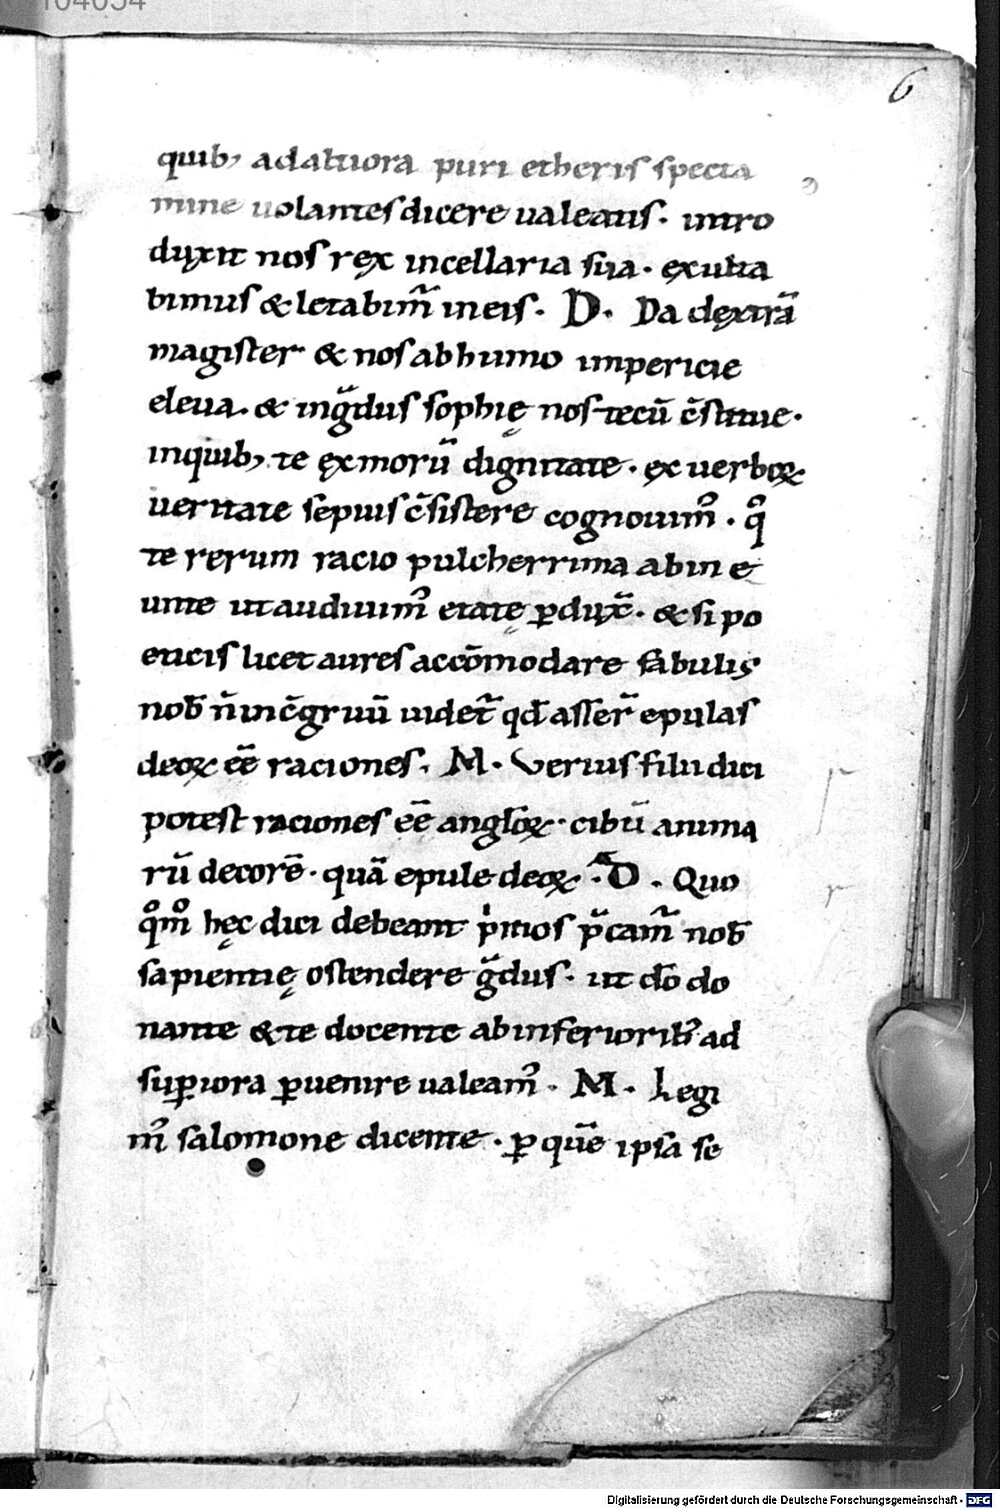 104054
6
quib, adaltiora puri etheris specta
mine uolantes dicere ualeatis. intro
duxit nos rex in cellaria sua. exulta
bimus & letabim᷒ in eis. D. Da dextrā
magister & nos ab humo impericie
eleua. & in gᵃdus sophię nos tecū c̄stitue.
in quib, te ex morū dignitate. ex uerboꝝ
ueritate sepius c̄sistere cognouim᷒. qͦ
te rerum racio pulcherrima ab in e
unte ut audiuim᷒ etatę ꝑduxͭ. & si po
eticis licet aures accōmodare fabulis
nob̄ n̄ inc̄gruū uidet᷑ qd̄ asser᷑ epulas
deoꝝ eē raciones. M. Verius filii dici
potest raciones eē angłoꝝ. cibū anima
rū decorē. quā epule deoꝝ. D. Quo
qͦm᷒ hęc dici debeant pⁱtios pᵃcam᷑ nob̄
sapientię ostendere gᵃdus. ut dō do
nante & te docente ab inferiorib᷒ ad
suꝑiora ꝑuenire ualeam᷒. M. Legi
m᷒ salomone dicente. ꝑ quē ipsa se
Digitalisierung gefördert durch die Deutsche Forschungsgemeinschaft - DFG